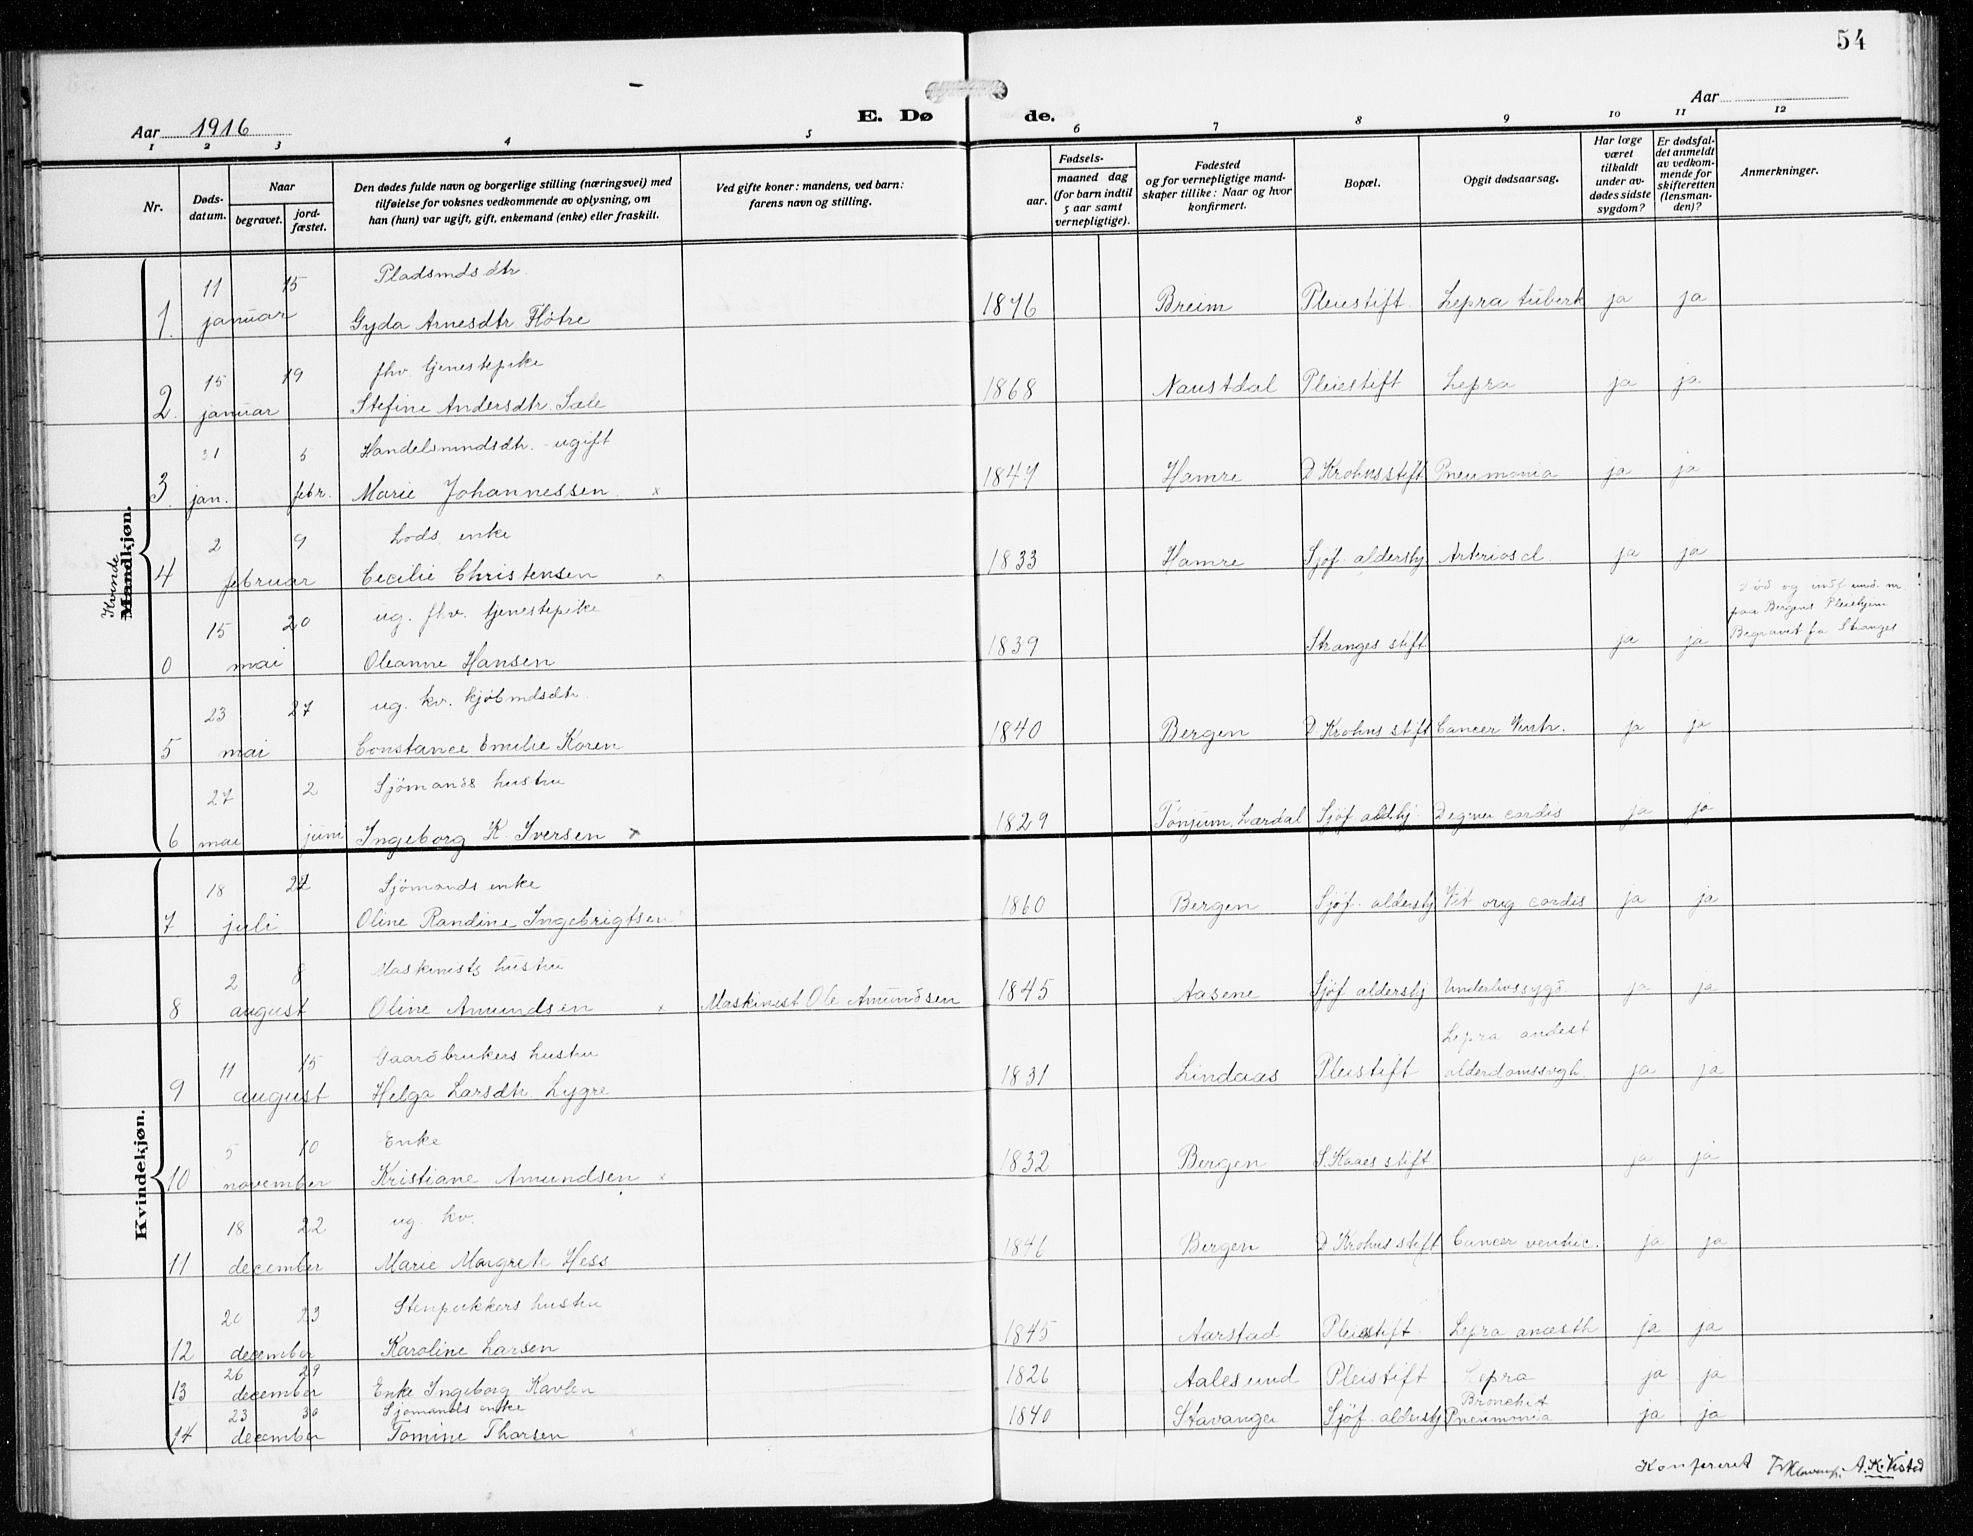 54
Aar 1916
E. Dø
de.
Aar
1 2 3 4 5 6 7 8 9 10 11 12
Nr.
Døds-
datum.
Naar
begravet.
jord-
fæstet.
Den dødes fulde navn og borgerlige stilling (næringsvei) med
tilføielse for voksnes vedkommende av oplysning, om
han (hun) var ugift, gift, enkemand (enke) eller fraskilt.
Ved gifte koner: mandens, ved barn:
farens navn og stilling.
Fødsels-
aar.
maaned dag
(for barn indtil
5 aar samt
vernepligtige).
Fødested
og for vernepligtige mand-
skaper tillike: Naar og hvor
konfirmert.
Bopæl.
Opgit dødsaarsag.
Har læge
været
tilkaldt
under av-
dødes sidste
sygdom?
Er dødsfal-
det anmeldt
av vedkom-
mende for
skifteretten
(lensman-
den)?
Anmerkninger.
Kvinde
Mandkjøn.
11 15 Pladsmds dtr.
1. januar Gyda Arnesdtr Flötre 1876 Breim Pleiestift. Lepra tuberk ja ja
15 19 fhv. tjenestepike
2. januar Stefine Andersdtr. Sæle 1868 Naustdal Pleiestift Lepra ja ja
31 5 Handelsmndsdtr. ugift
3. jan. febr. Marie Johannessen x 1847 Hamre D Krohns stift Pneumonia ja ja
2 9 Lods enke
4 februar Cecilie Christensen x 1833 Hamre Sjöf. aldershj Arterioscl. ja ja
Död og m.
paa Bergens Pleiehjem
Begravet fra Stranges
15 20 ug. fhv. tjenestepike
0 mai Oleanne Hansen 1839 Stranges stift ja ja
23 27 ug. kv. kjöbmdsdtr.
5 mai Constance Emilie Koren 1840 Bergen D Krohns stift Cancer Ventr. ja ja
27 2 Sjömands hustru
6 mai juni Ingeborg K. Iversen x 1829 Tönjum, Lærdal Sjöf. aldhj. Degner cordis ja ja
Kvindekjøn.
18 24 Sjömands enke
7 juli Oline Randine Ingebrigtsen 1860 Bergen Sjöf. aldershj Vit org cordis ja ja
2 8 Maskinists hustru
8 august Oline Amundsen x Maskinist Ole Amundsen 1845 Aasene Sjöf aldershj Underlivssygd ja ja
11 15 Gaardbrukers hustru Lepra andest
9 august Helga Larsdtr. Lygre 1831 Lindaas Pleistift alderdomssvgh. ja ja
5 10 Enke
10 november Kristiane Amundsen x 1832 Bergen S. Kaaes stift ja ja
18 22 ug. kv.
11 december Marie Margrete Hess 1846 Bergen D Krohns stift Cancer ventric. ja ja
20 23 Stenpukkers hustru
12 december Karoline Larsen 1845 Aarstad Pleiestift. Lepra anæsth ja ja
26 29
13 december Enke Ingeborg Kavlen 1826 Aalesund Pleistift Lepra ja ja
23 30 Sjomands enke Bronchit
14 december Tomine Thorsen x 1840 Stavanger Sjöf. aldershj Pneumonia ja ja
Konfereret A. K. Visted